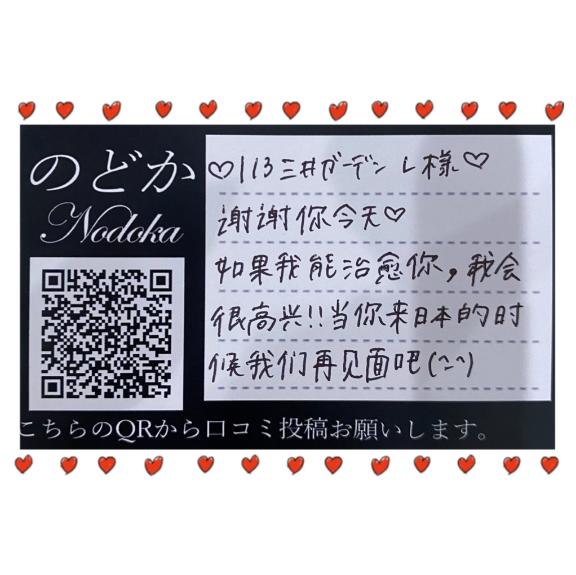 のどか
Nodoka
♡113三井ガーデン L様♡
谢谢你今天♡
如果我能治愈你，我会
很高兴!!当你来日本的时
候我们再见面吧(^-^)
こちらのQRから口コミ投稿お願いします。